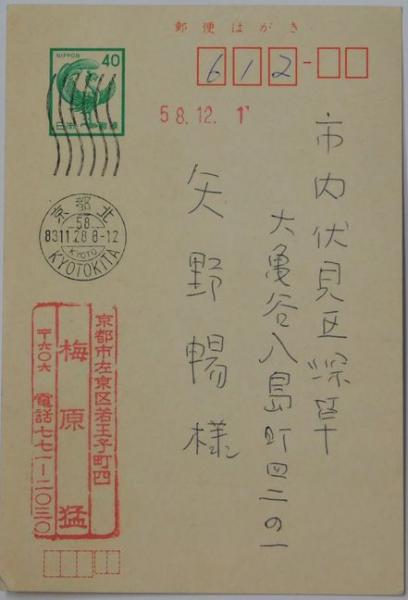 郵便はがき
NIPPON
40
日本郵便
612-
58.12.1
市内伏見区深草
大亀谷八島町四二の一
矢野暢様
京都北
58
KYOTO
8311.28 8-12
KYOTOKITA
京都市左京区若王子町四
梅原猛
〒六〇六 電話七七一-二〇三〇